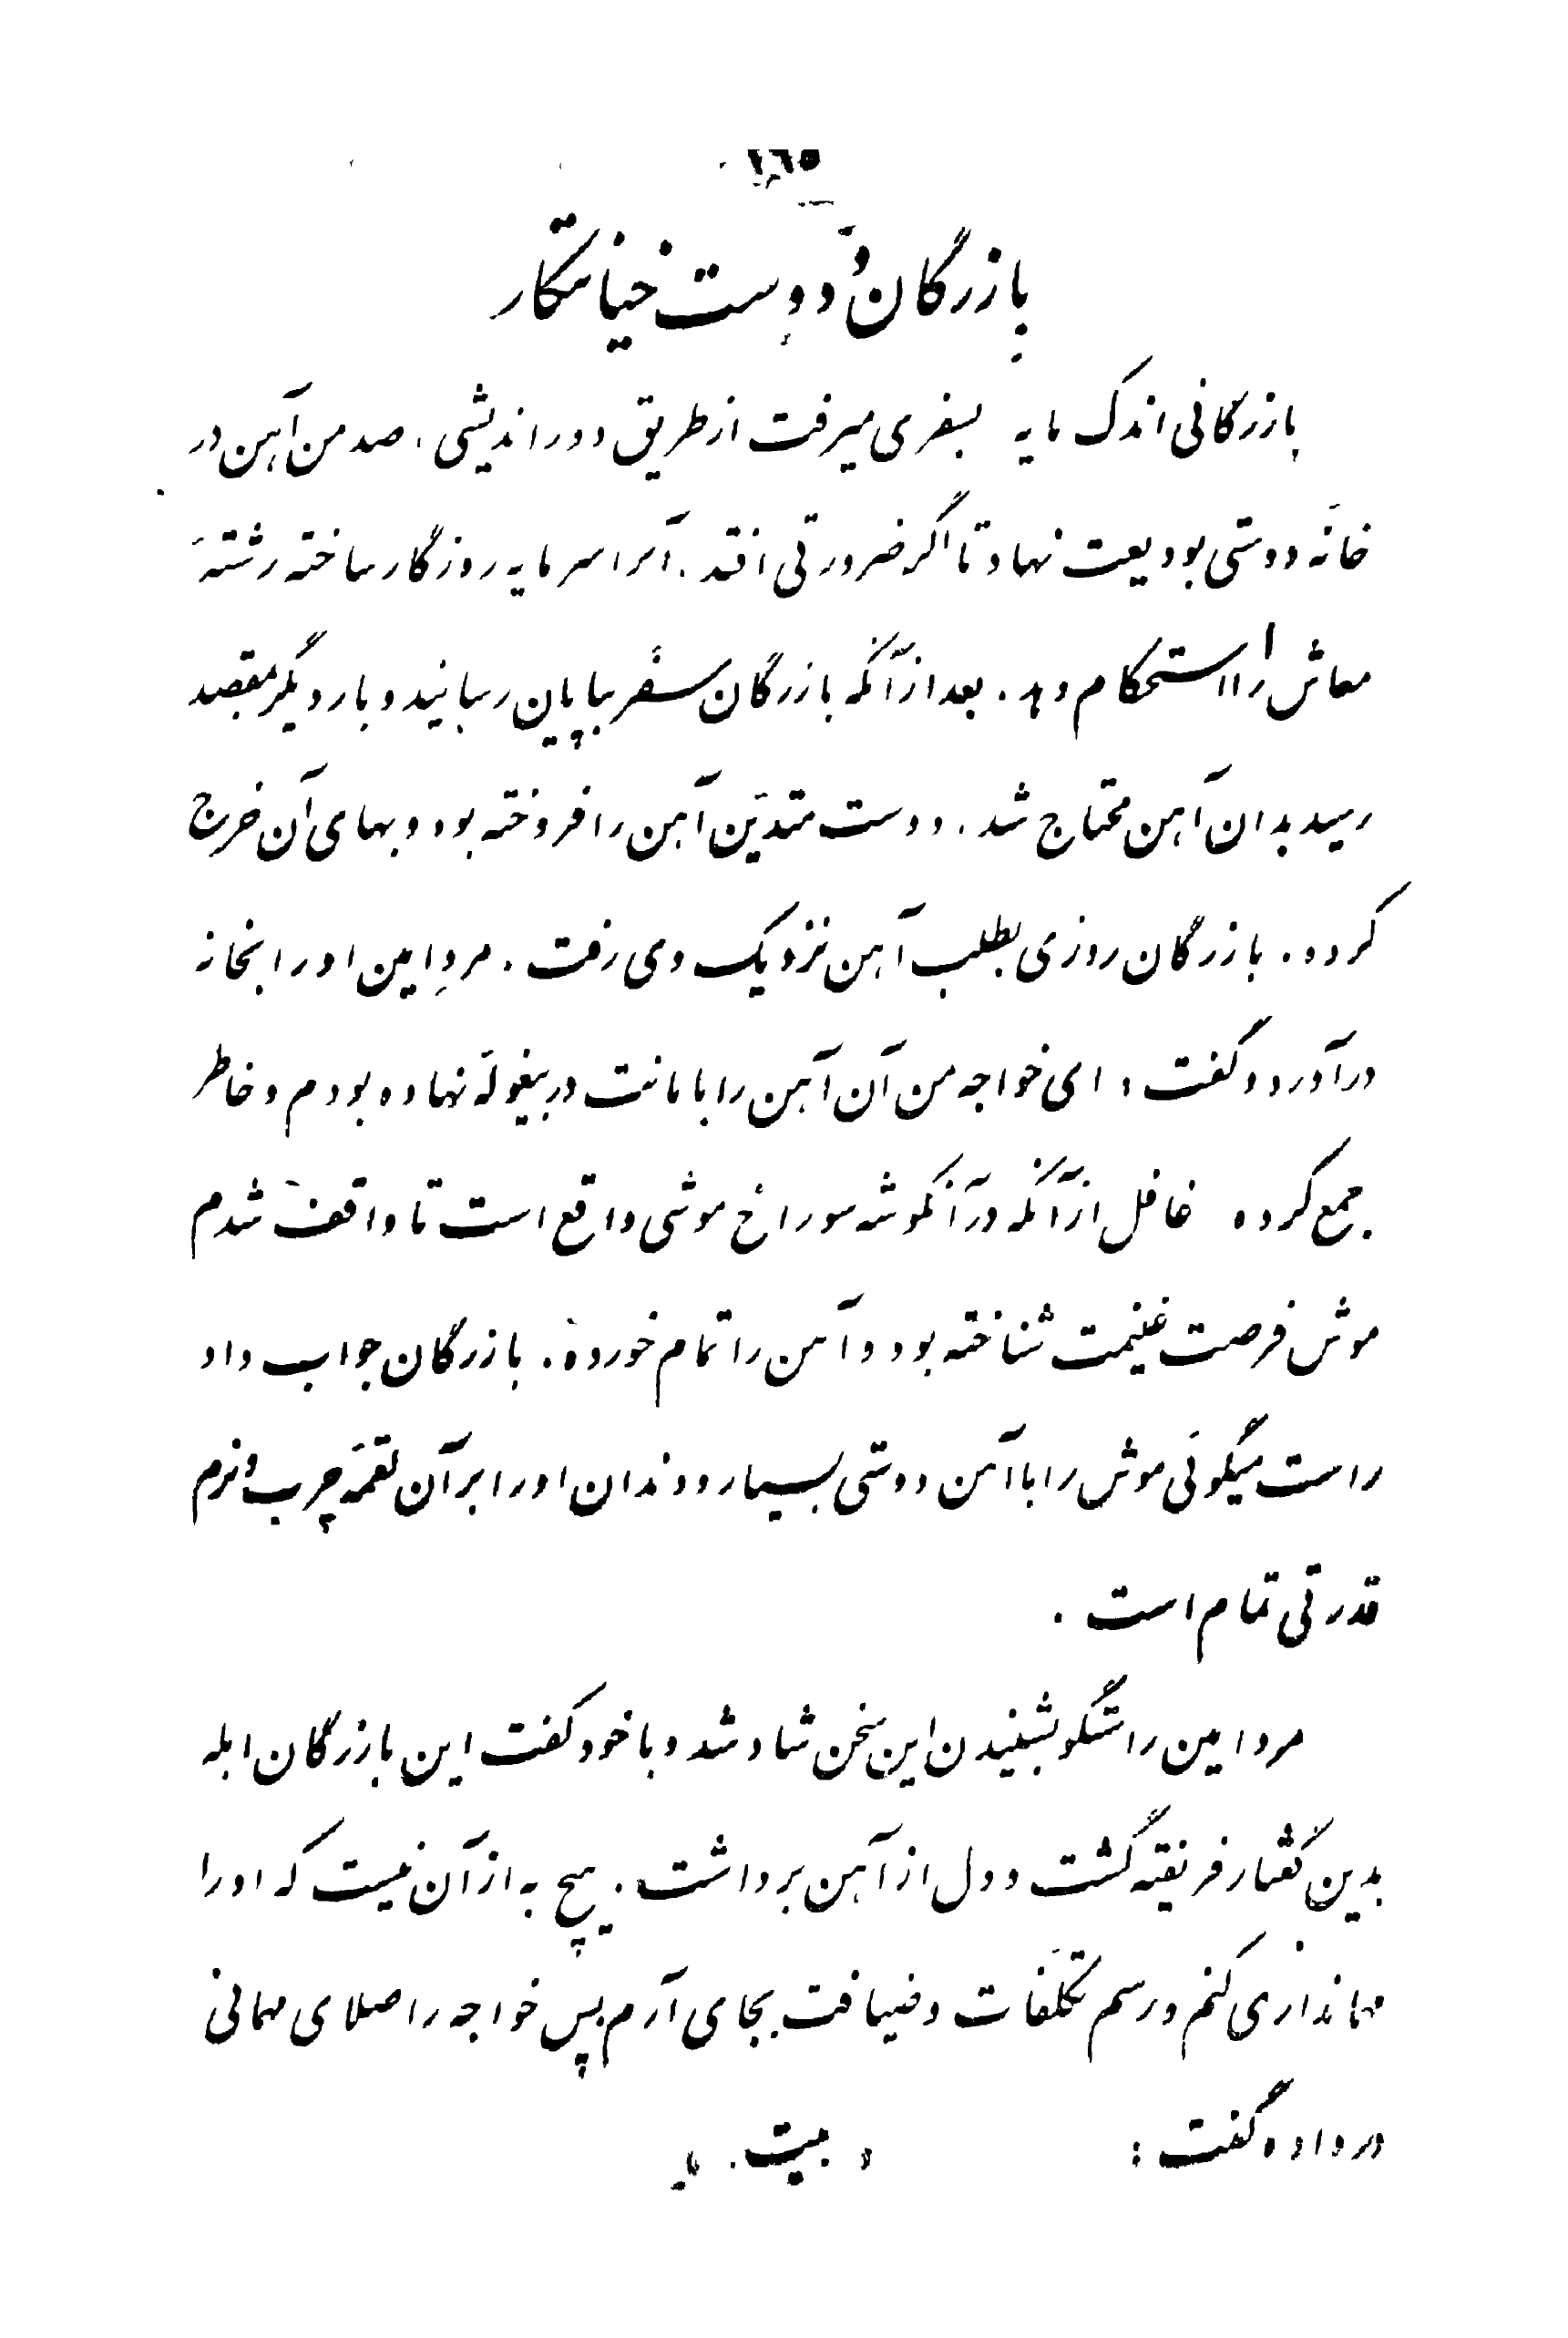 ١٦٥
بازرگان و دوست خیانتکار
بازرگانی اندک مایه بسفری میرفت از طریق دوراندیشی، صد من آهن در
خانهٔ دوستی بودیعت نهاد تا اگر ضرورتی افتد، آنرا سرمایه روزگار ساخته رشتهٔ
معاش را استحکام دهد. بعد از آنکه بازرگان سفر بپایان رسانید و بار دیگر بمقصد
رسید بدان آهن محتاج شد. دوست متدیّن آهن را فروخته بود و بهای آن خرج
کرده. بازرگان روزی بطلب آهن نزدیک وی رفت. مردِ امین او را بخانه
درآورد و گفت، ای خواجه من آن آهن را بامانت در بیغولهٔ نهاده بودم و خاطر
جمع کرده غافل از آنکه در آنگوشه سوراخ موشی واقع است تا واقف شدم
موش فرصت غنیمت شناخته بود و آهن را تمام خورده. بازرگان جواب داد
راست میگوئی موش را با آهن دوستی بسیار و دندان او را بر آن لقمهٔ چرب و نرم
قدرتی تمام است.
مرد امین راستگو بشنیدن این سخن شاد شد و با خود گفت این بازرگان ابله
بدین گفتار فریفته گشت و دل از آهن برداشت. هیچ به از آن نیست که او را
مهمانداری کنم و رسم تکلّفات و ضیافت بجای آرم پس خواجه را صلای مهمانی
در داده گفت: « بیت »